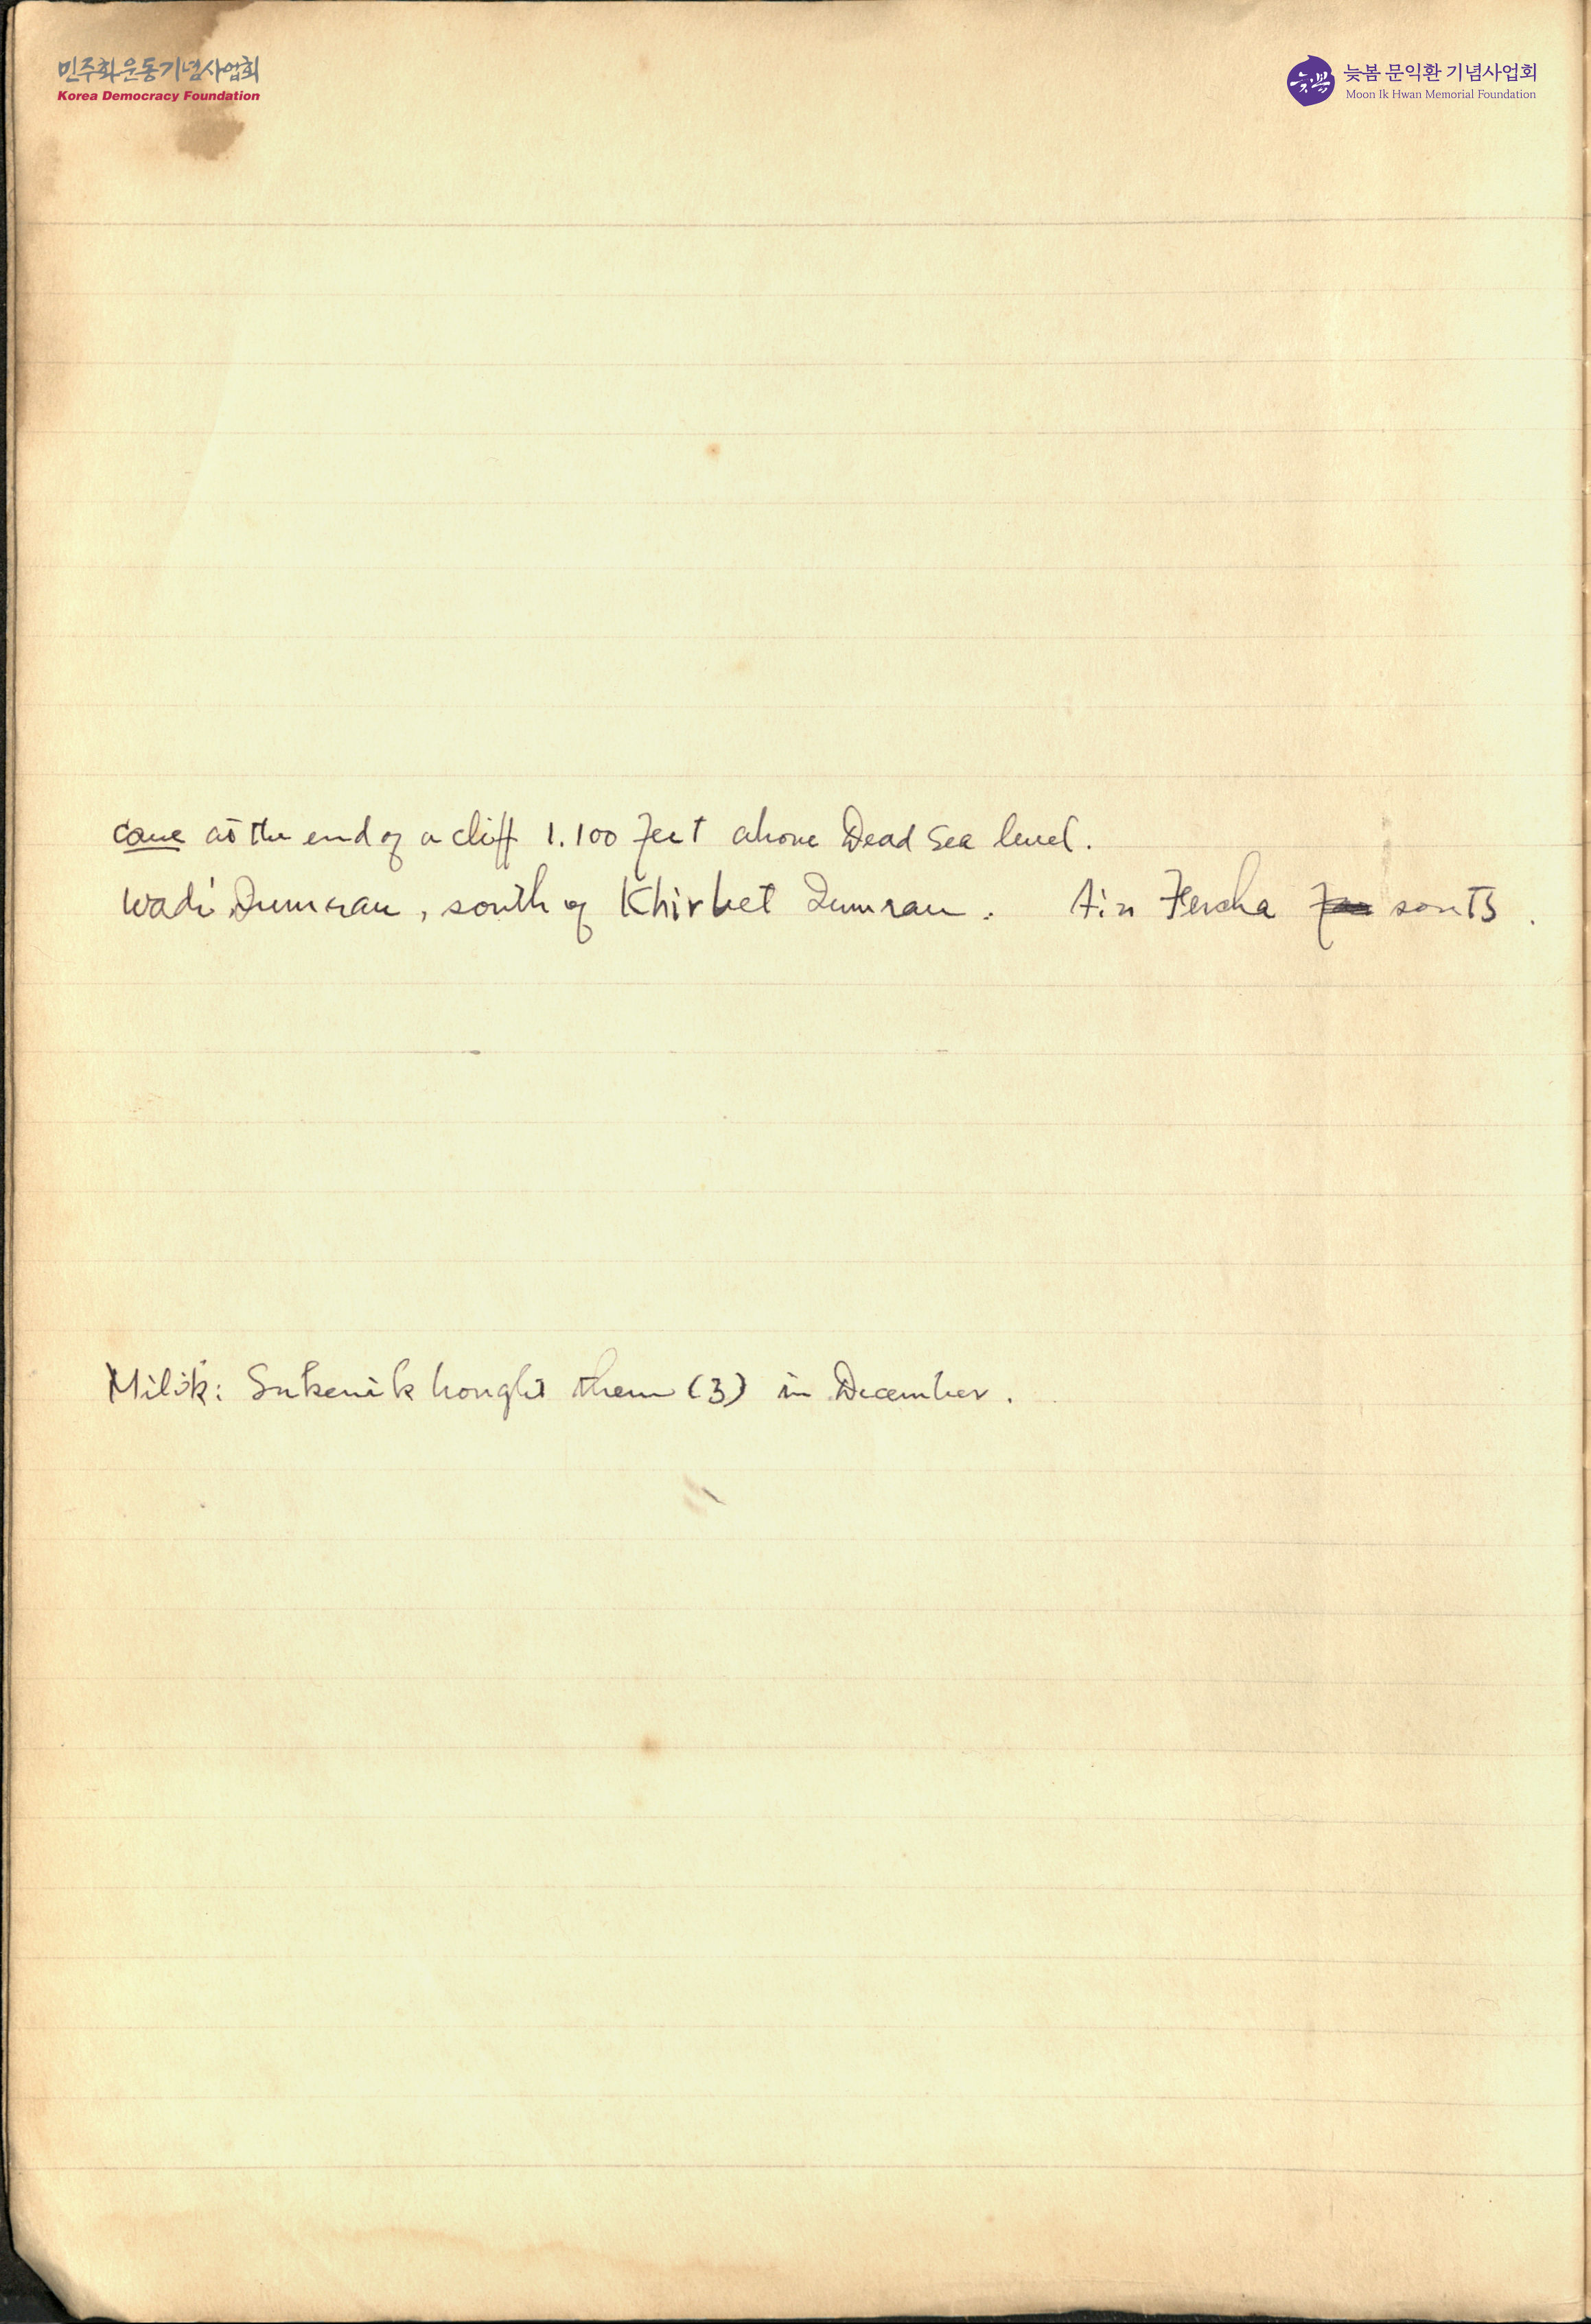 민주화운동기념사업회
Korea Democracy Foundation
늦봄
늦봄 문익환 기념사업회
Moon Ik Hwan Memorial Foundation
cave at the end of a cliff 1.100 feet above Dead Sea level.
Wadi Qumran, south of Khirbet Qumran. Ain Feshcha south.
Milik: Sukenik bought them (3) in December.